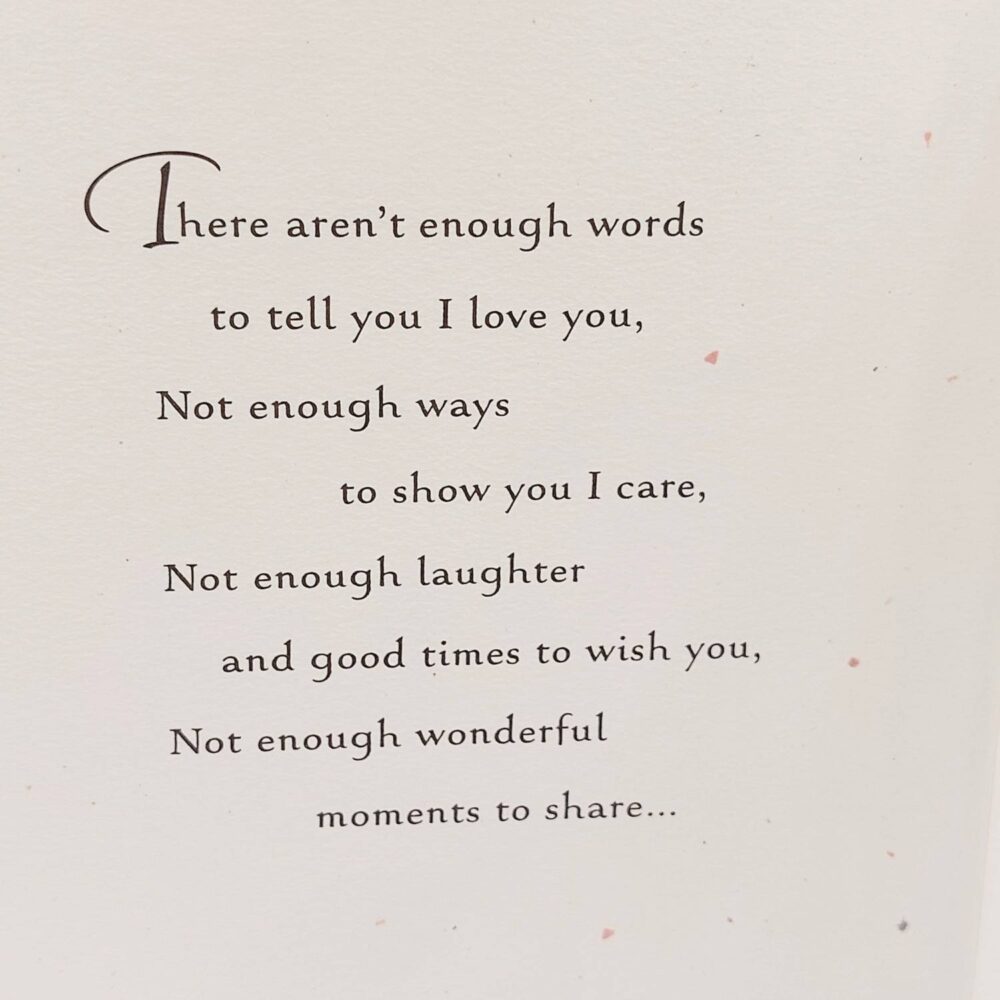 There aren’t enough words
to tell you I love you,
Not enough ways
to show you I care,
Not enough laughter
and good times to wish you,
Not enough wonderful
moments to share...